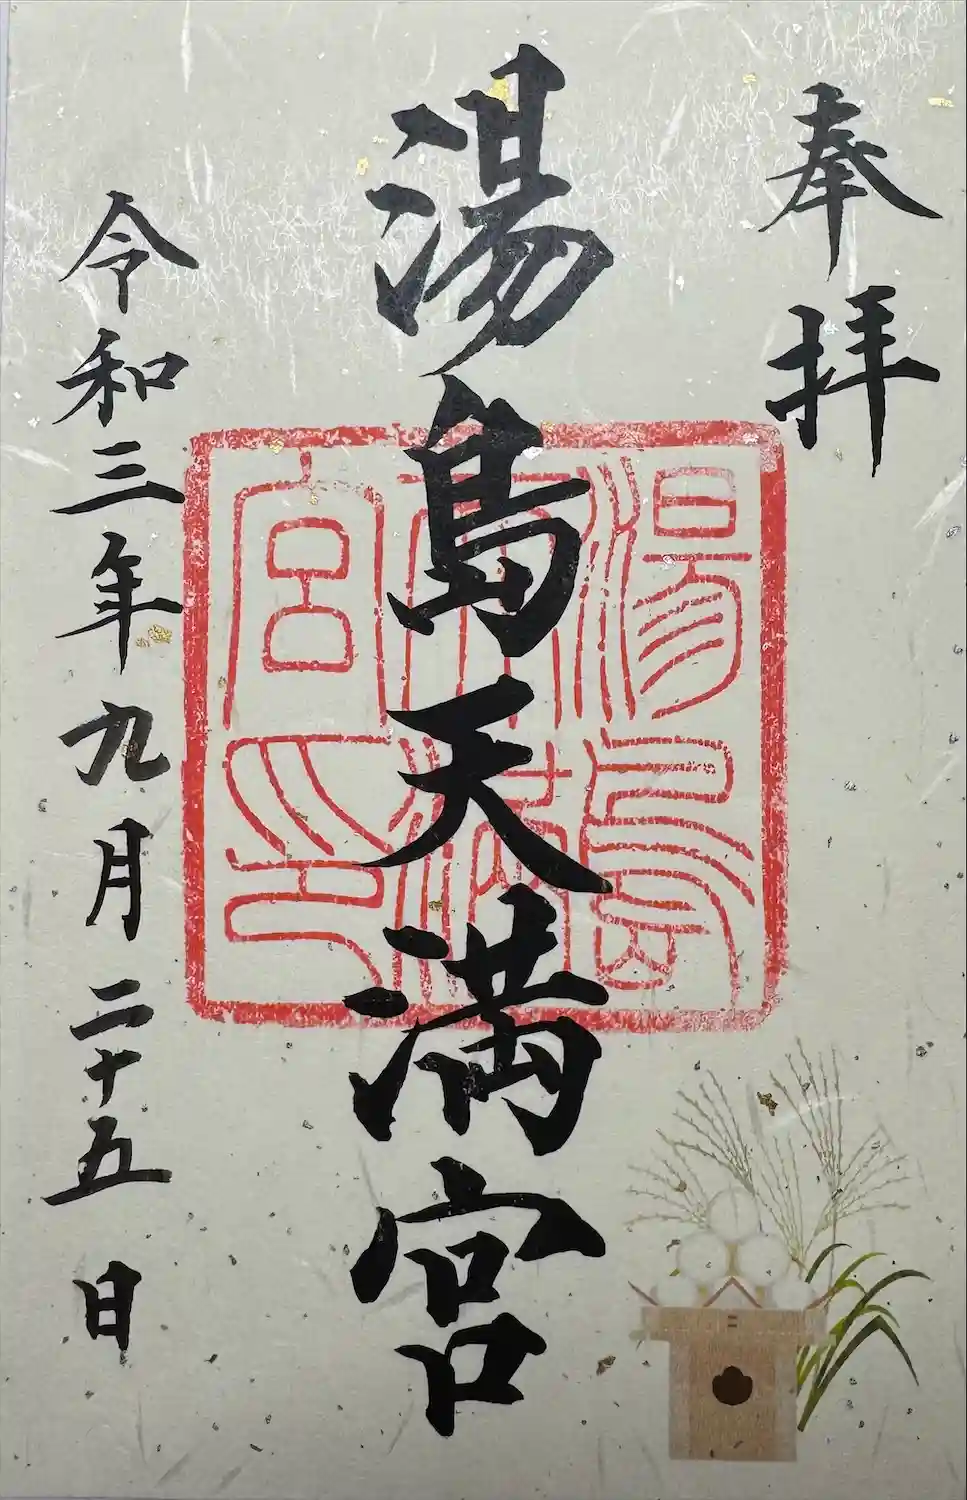 奉拝
湯島天満宮
湯島天満宮印
令和三年九月二十五日